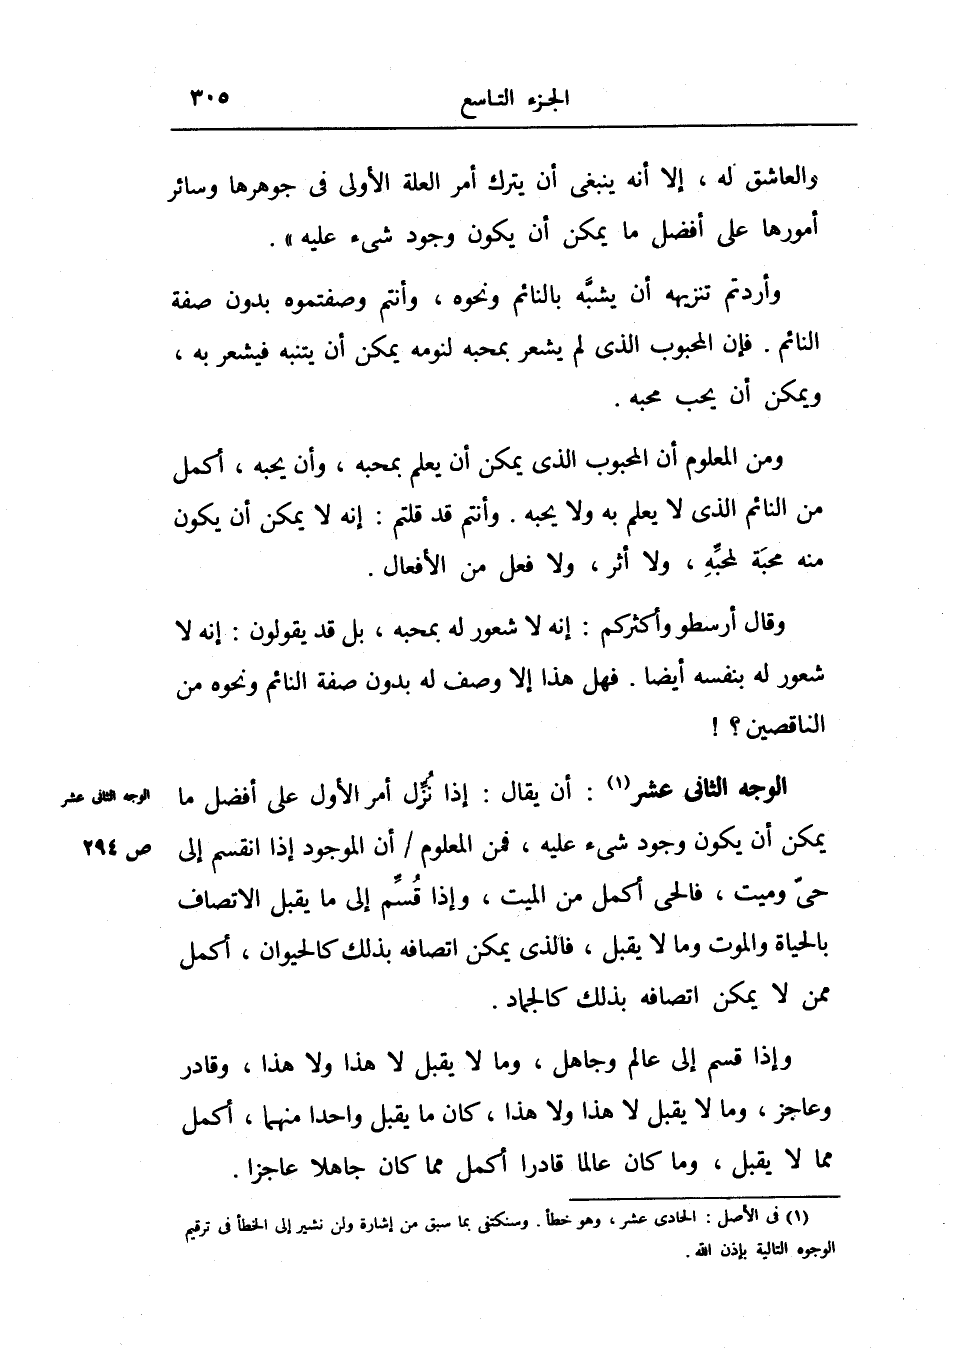 الجزء التاسع ٣٠٥
والعاشق له ، إلا أنه ينبغى أن يترك أمر العلة الأولى فى جوهرها وسائر
أمورها على أفضل ما يمكن أن يكون وجود شىء عليه » .
وأردتم تنزيهه أن يشبَّه بالنائم ونحوه ، وأنتم وصفتموه بدون صفة
النائم . فإن المحبوب الذى لم يشعر بمحبه لنومه يمكن أن يتنبه فيشعر به ،
ويمكن أن يحب محبه .
ومن المعلوم أن المحبوب الذى يمكن أن يعلم بمحبه ، وأن يحبه ، أكمل
من النائم الذى لا يعلم به ولا يحبه . وأنتم قد قلتم : إنه لا يمكن أن يكون
منه محبَة لمحبِّهِ ، ولا أثر ، ولا فعل من الأفعال .
وقال أرسطو وأكثركم : إنه لا شعور له بمحبه ، بل قد يقولون : إنه لا
شعور له بنفسه أيضا . فهل هذا إلا وصف له بدون صفة النائم ونحوه من
الناقصين ؟ !
الوجه الثانى عشر(١) : أن يقال : إذا نُزِّل أمر الأول على أفضل ما
الوجه الثانى عشر
يمكن أن يكون وجود شىء عليه ، فمن المعلوم / أن الموجود إذا انقسم إلى
ص ٢٩٤
حىّ وميت ، فالحى أكمل من الميت ، وإذا قُسِّم إلى ما يقبل الاتصاف
بالحياة والموت وما لا يقبل ، فالذى يمكن اتصافه بذلك كالحيوان ، أكمل
ممن لا يمكن اتصافه بذلك كالجماد .
وإذا قسم إلى عالم وجاهل ، وما لا يقبل لا هذا ولا هذا ، وقادر
وعاجز ، وما لا يقبل لا هذا ولا هذا ، كان ما يقبل واحدا منهما ، أكمل
مما لا يقبل ، وما كان عالما قادرا أكمل مما كان جاهلا عاجزا .
(١) فى الأصل : الحادى عشر ، وهو خطأ . وسنكتفى بما سبق من إشارة ولن نشير إلى الخطأ فى ترقيم
الوجوه التالية بإذن الله .